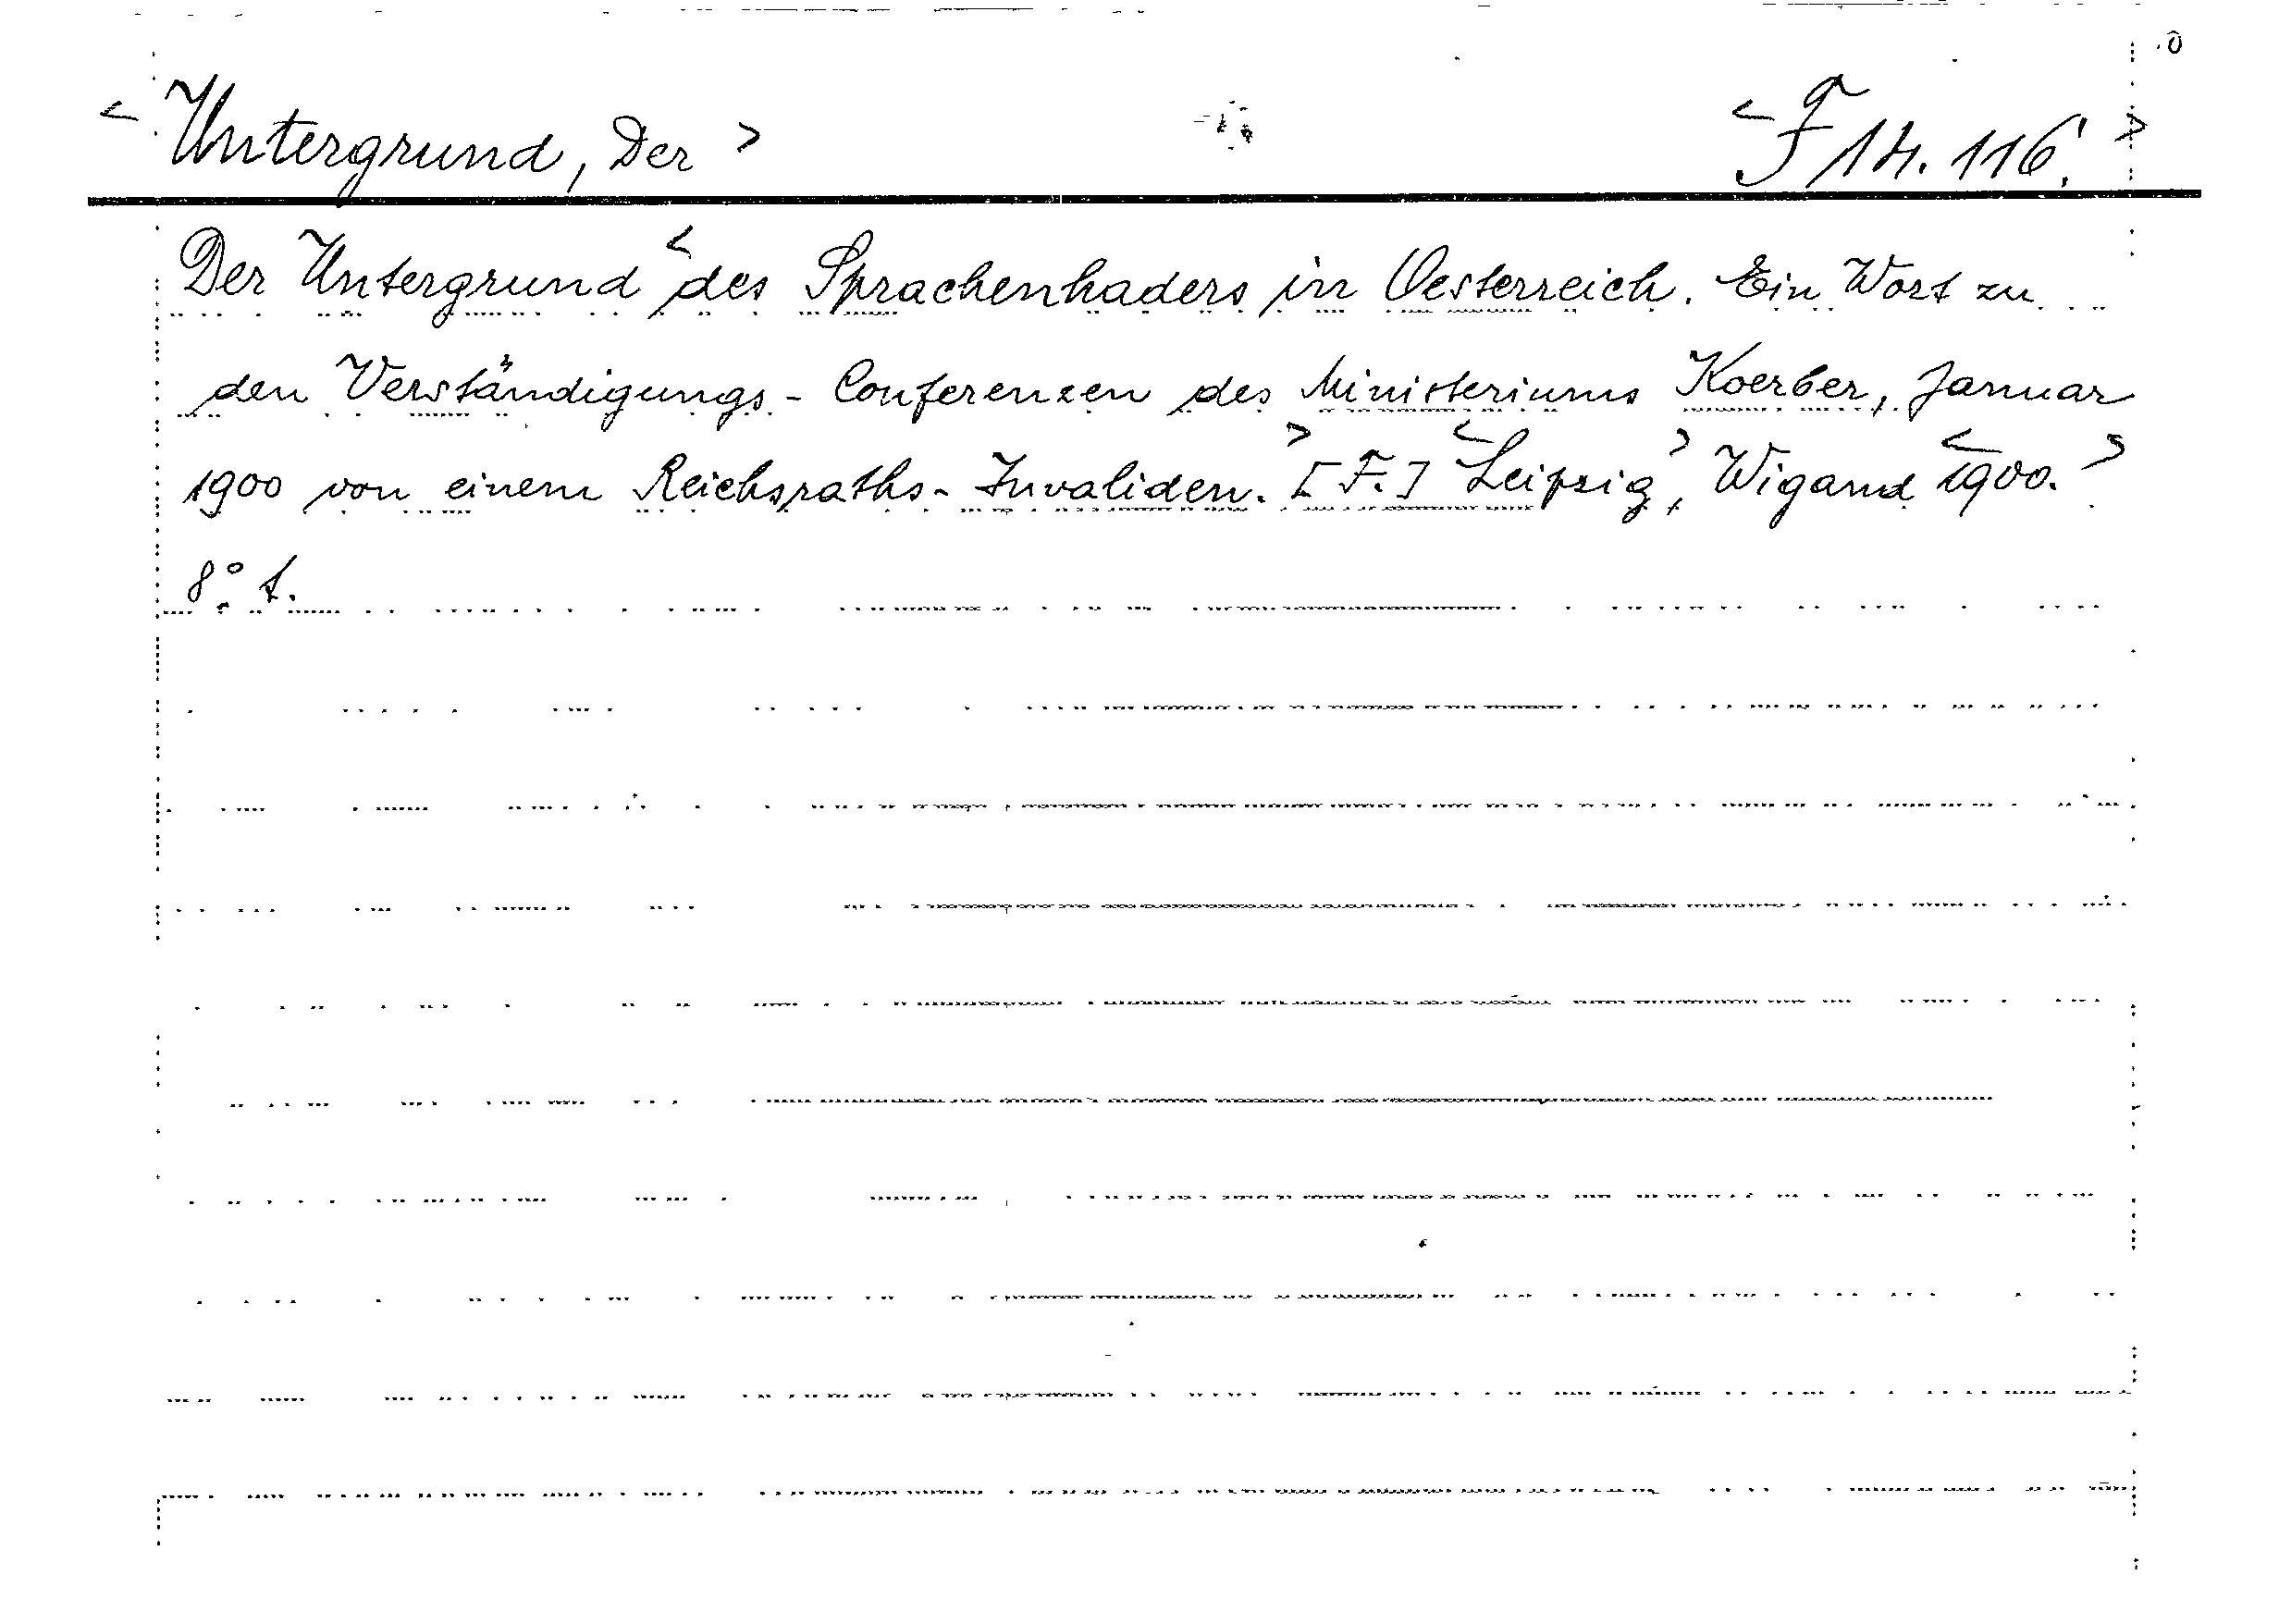 < Untergrund, Der > < F 14. 116. >
Der Untergrund < des Sprachenhaders in Oesterreich. Ein Wort zu
den Verständigungs-Conferenzen des Ministeriums Koerber, Januar
1900 von einem Reichsraths-Invaliden. > [F.] < Leipzig >, Wigand < 1900. >
8° t.